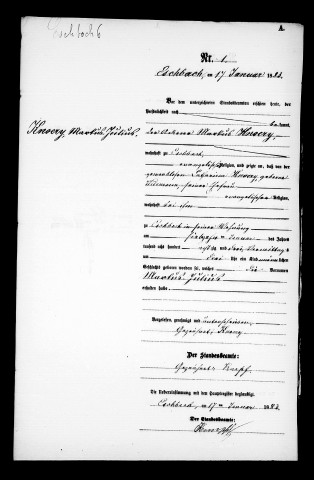 Eschbach 6
A.
Nr. 1.
Eschbach, am 17 Januar 1883.
Vor dem unterzeichneten Standesbeamten erschien heute, der
Persönlichkeit nach
be kannt,
der Ackerer Markus Knoery,
Knoery, Markus Julius.
wohnhaft zu Eschbach,
evangelischer Religion, und zeigte an, daß von der
geborene
seiner Ehefrau
evangelischer Religion,
wohnhaft bei ihm
zu Eschbach in seiner Wohnung
am Januar des Jahres
tausend acht hundert achtzig und drei, Vormittags
um drei Uhr ein Kind männlichen
Geschlechts geboren worden sei, welches die Vornamen
Markus Julius
erhalten habe.
Vorgelesen, genehmigt und unterschrieben
Gezeichnet: Knoery
Der Standesbeamte:
Gezeichnet: Knapf.
Die Uebereinstimmung mit dem Hauptregister beglaubigt
Eschbach, am 17ten Januar 1883.
Der Standesbeamte: